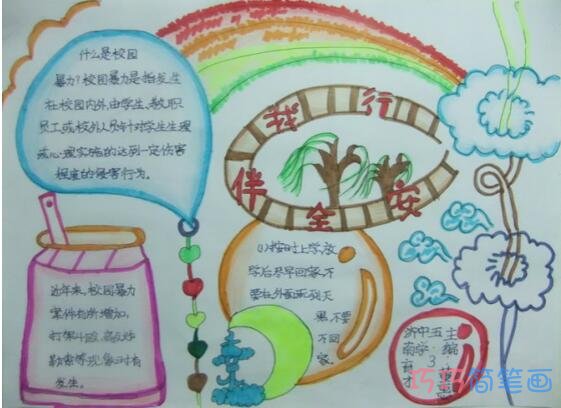 什么是校园
暴力?校园暴力是指发生
在校园内外,由学生、教职
员工或校外人员针对学生生理
或心理实施的达到一定伤害
程度的侵害行为。
安全伴我行
(1)按时上学,放
学后尽早回家,不
要在外面玩到天
黑不要
不回
家。
近年来,校园暴力
案件有所增加,
打架斗殴,
勒索等现象时有
发生。
主编:
五·3
中学
济南
巧巧简笔画